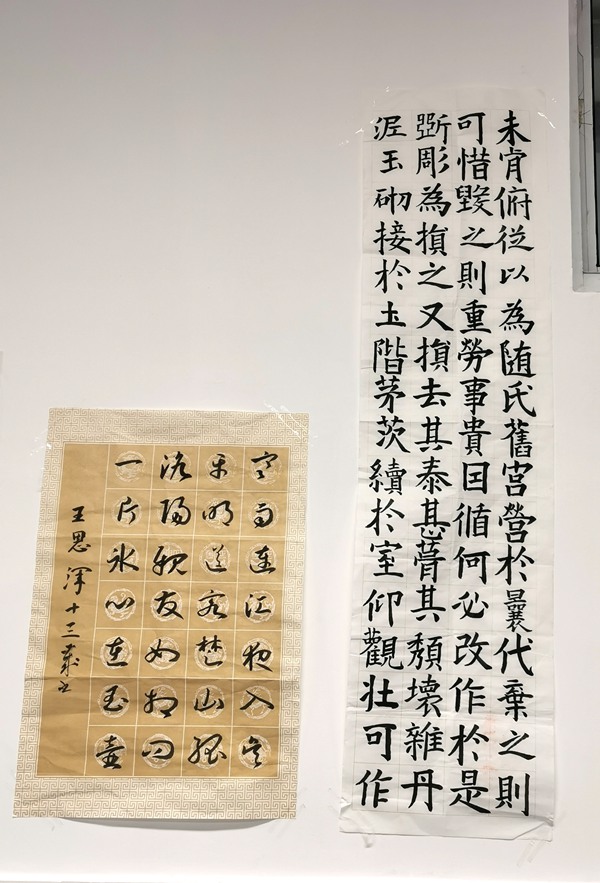 未肯俯從以為随氏舊宮營於曩代棄之則
可惜毀之則重勞事貴因循何必改作於是
斵彫為損之又損去其泰甚葺其頹壞雜丹
泥玉砌接於土階茅茨續於室仰觀壮可作
寒雨連江夜入吴
平明送客楚山孤
洛陽親友如相问
一片冰心在玉壺
王思 十三歲书